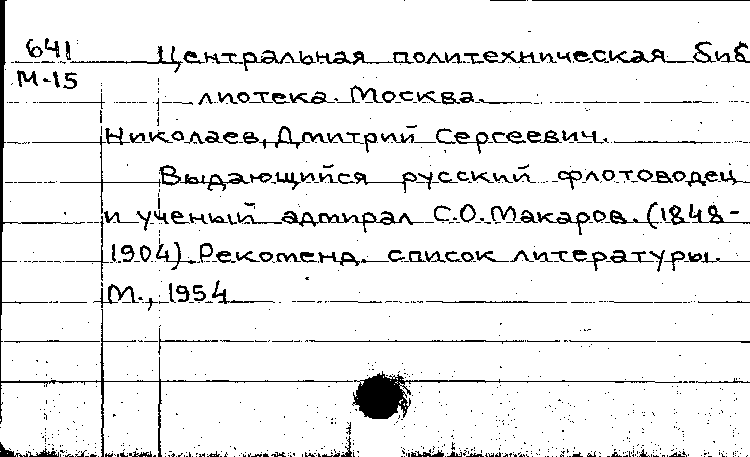 641 Центральная политехническая биб
М-15 лиотека. Москва.
Николаев, Дмитрий Сергеевич.
Выдающийся русский флотоводец
и ученый адмирал С.О. Макаров. (1848-
1904). Рекоменд. список литературы.
М., 1954